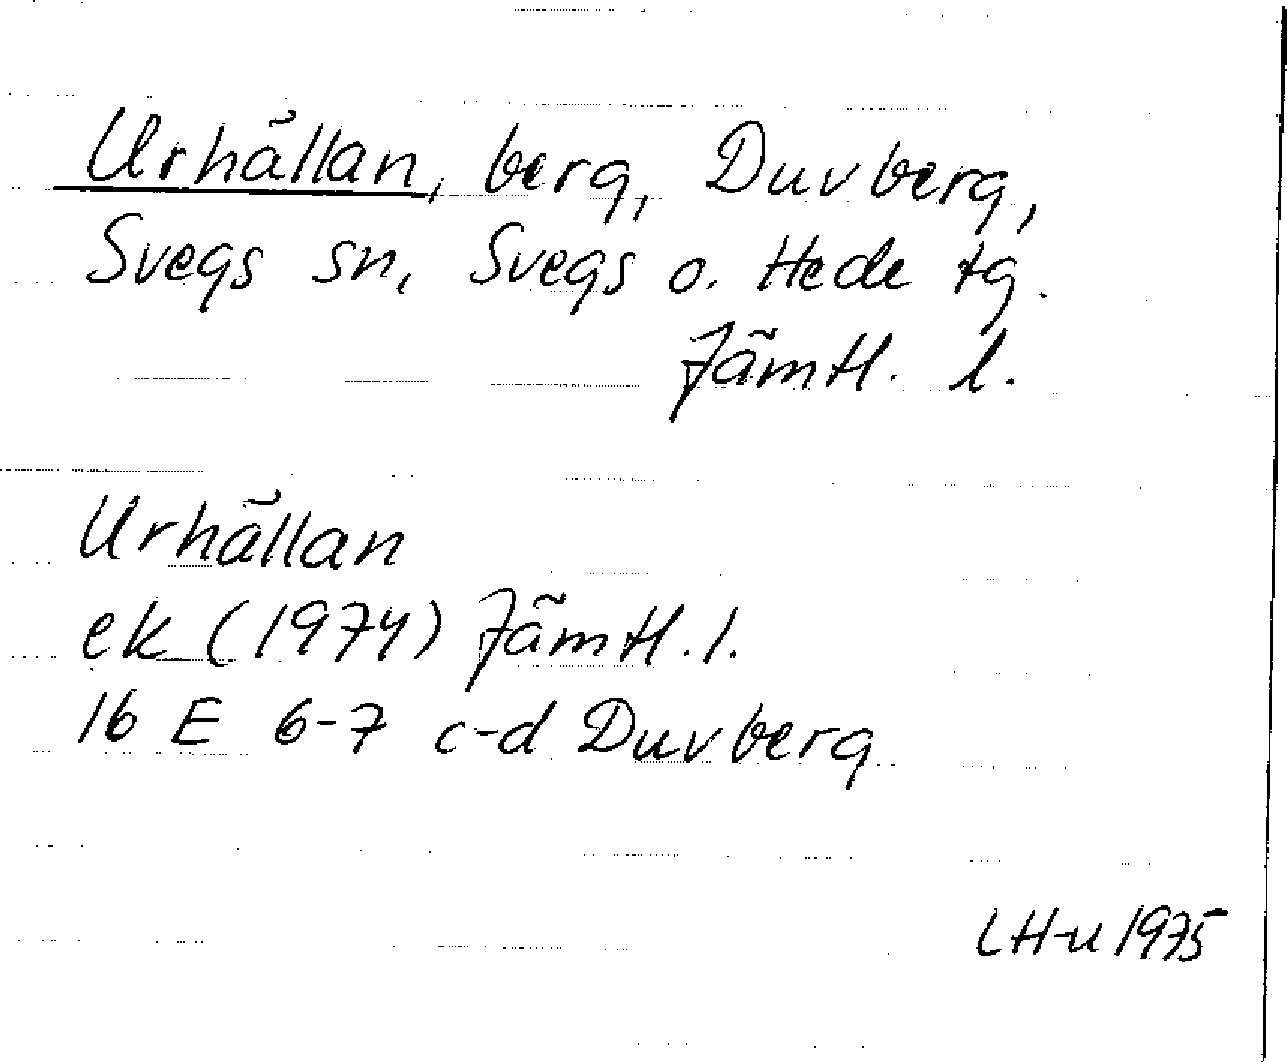 Urhällan, berg, Duvberg,
Svegs sn, Svegs o. Hede tg.
Jämtl. l.
Urhällan
ek (1974) Jämtl. l.
16 E 6-7 c-d Duvberg
LH-u 1975